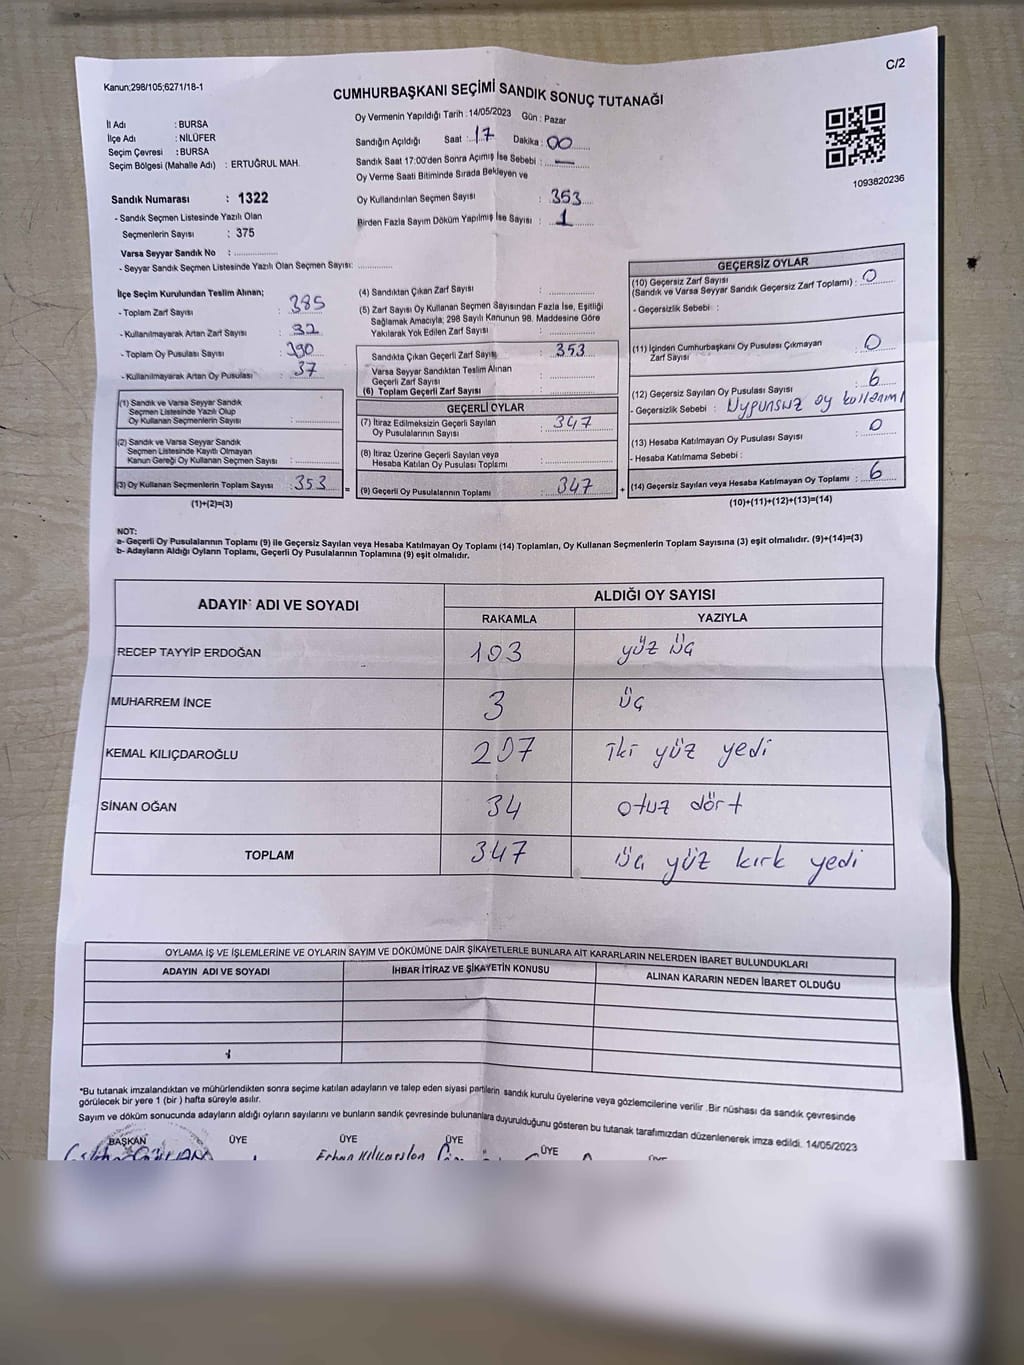 C/2
Kanun;298/105;6271/18-1
CUMHURBAŞKANI SEÇİMİ SANDIK SONUÇ TUTANAĞI
İl Adı : BURSA
İlçe Adı : NİLÜFER
Seçim Çevresi : BURSA
Seçim Bölgesi (Mahalle Adı) : ERTUĞRUL MAH.
Oy Vermenin Yapıldığı Tarih : 14/05/2023 Gün : Pazar
Sandığın Açıldığı Saat : 17 Dakika : 00
Sandık Saat 17:00'den Sonra Açımış İse Sebebi : —
Oy Verme Saati Bitiminde Sırada Bekleyen ve
Oy Kullandırılan Seçmen Sayısı : 353
Birden Fazla Sayım Döküm Yapılmış İse Sayısı : 1
1093820236
Sandık Numarası : 1322
- Sandık Seçmen Listesinde Yazılı Olan
Seçmenlerin Sayısı : 375
Varsa Seyyar Sandık No : ................
- Seyyar Sandık Seçmen Listesinde Yazılı Olan Seçmen Sayısı: .............
İlçe Seçim Kurulundan Teslim Alınan;
- Toplam Zarf Sayısı : 385
- Kullanılmayarak Artan Zarf Sayısı : 32
- Toplam Oy Pusulası Sayısı : 390
- Kullanılmayarak Artan Oy Pusulası : 37
(1) Sandık ve Varsa Seyyar Sandık
Seçmen Listesinde Yazılı Olup
Oy Kullanan Seçmenlerin Sayısı : ................
(2) Sandık ve Varsa Seyyar Sandık
Seçmen Listesinde Kayıtlı Olmayan
Kanun Gereği Oy Kullanan Seçmen Sayısı : ................
(3) Oy Kullanan Seçmenlerin Toplam Sayısı : 353 =
(1)+(2)=(3)
(4) Sandıktan Çıkan Zarf Sayısı : ................
(5) Zarf Sayısı Oy Kullanan Seçmen Sayısından Fazla İse, Eşitliği
Sağlamak Amacıyla; 298 Sayılı Kanunun 98. Maddesine Göre
Yakılarak Yok Edilen Zarf Sayısı : ................
Sandıkta Çıkan Geçerli Zarf Sayısı : 353
Varsa Seyyar Sandıktan Teslim Alınan
Geçerli Zarf Sayısı : ................
(6) Toplam Geçerli Zarf Sayısı : ................
GEÇERLİ OYLAR
(7) İtiraz Edilmeksizin Geçerli Sayılan
Oy Pusulalarının Sayısı : 347
(8) İtiraz Üzerine Geçerli Sayılan veya
Hesaba Katılan Oy Pusulası Toplamı : ................
(9) Geçerli Oy Pusulalarının Toplamı : 347 +
GEÇERSİZ OYLAR
(10) Geçersiz Zarf Sayısı
(Sandık ve Varsa Seyyar Sandık Geçersiz Zarf Toplamı) : 0
- Geçersizlik Sebebi :
(11) İçinden Cumhurbaşkanı Oy Pusulası Çıkmayan
Zarf Sayısı : 0
(12) Geçersiz Sayılan Oy Pusulası Sayısı : 6
- Geçersizlik Sebebi : Uygunsuz oy kullanımı
(13) Hesaba Katılmayan Oy Pusulası Sayısı : 0
- Hesaba Katılmama Sebebi :
(14) Geçersiz Sayılan veya Hesaba Katılmayan Oy Toplamı : 6
(10)+(11)+(12)+(13)=(14)
NOT:
a- Geçerli Oy Pusulalarının Toplamı (9) ile Geçersiz Sayılan veya Hesaba Katılmayan Oy Toplamı (14) Toplamları, Oy Kullanan Seçmenlerin Toplam Sayısına (3) eşit olmalıdır. (9)+(14)=(3)
b- Adayların Aldığı Oyların Toplamı, Geçerli Oy Pusulalarının Toplamına (9) eşit olmalıdır.
ADAYIN ADI VE SOYADI ALDIĞI OY SAYISI
RAKAMLA YAZIYLA
RECEP TAYYİP ERDOĞAN 103 yüz üç
MUHARREM İNCE 3 üç
KEMAL KILIÇDAROĞLU 207 iki yüz yedi
SİNAN OĞAN 34 otuz dört
TOPLAM 347 üç yüz kırk yedi
OYLAMA İŞ VE İŞLEMLERİNE VE OYLARIN SAYIM VE DÖKÜMÜNE DAİR ŞİKAYETLERLE BUNLARA AİT KARARLARIN NELERDEN İBARET BULUNDUKLARI
ADAYIN ADI VE SOYADI İHBAR İTİRAZ VE ŞİKAYETİN KONUSU ALINAN KARARIN NEDEN İBARET OLDUĞU
*Bu tutanak imzalandıktan ve mühürlendikten sonra seçime katılan adayların ve talep eden siyasi partilerin sandık kurulu üyelerine veya gözlemcilerine verilir .Bir nüshası da sandık çevresinde
görülecek bir yere 1 (bir ) hafta süreyle asılır.
Sayım ve döküm sonucunda adayların aldığı oyların sayılarını ve bunların sandık çevresinde bulunanlara duyurulduğunu gösteren bu tutanak tarafımızdan düzenlenerek imza edildi. 14/05/2023
BAŞKAN ÜYE ÜYE ÜYE ÜYE
Erhan